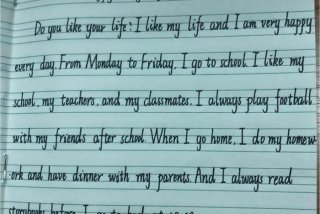 Do you like your life? I like my life and I am very happy
every day. From Monday to Friday, I go to school. I like my
school, my teachers, and my classmates. I always play football
with my friends after school. When I go home, I do my homew
ork and have dinner with my parents. And I always read
storybooks before I go to bed at